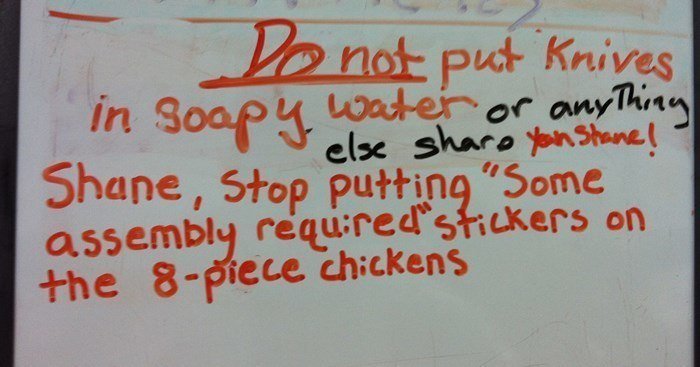 Do not put Knives
in soapy water or anyThing
else sharp Yeah Shane!
Shane, Stop putting "Some
assembly required" stickers on
the 8-piece chickens